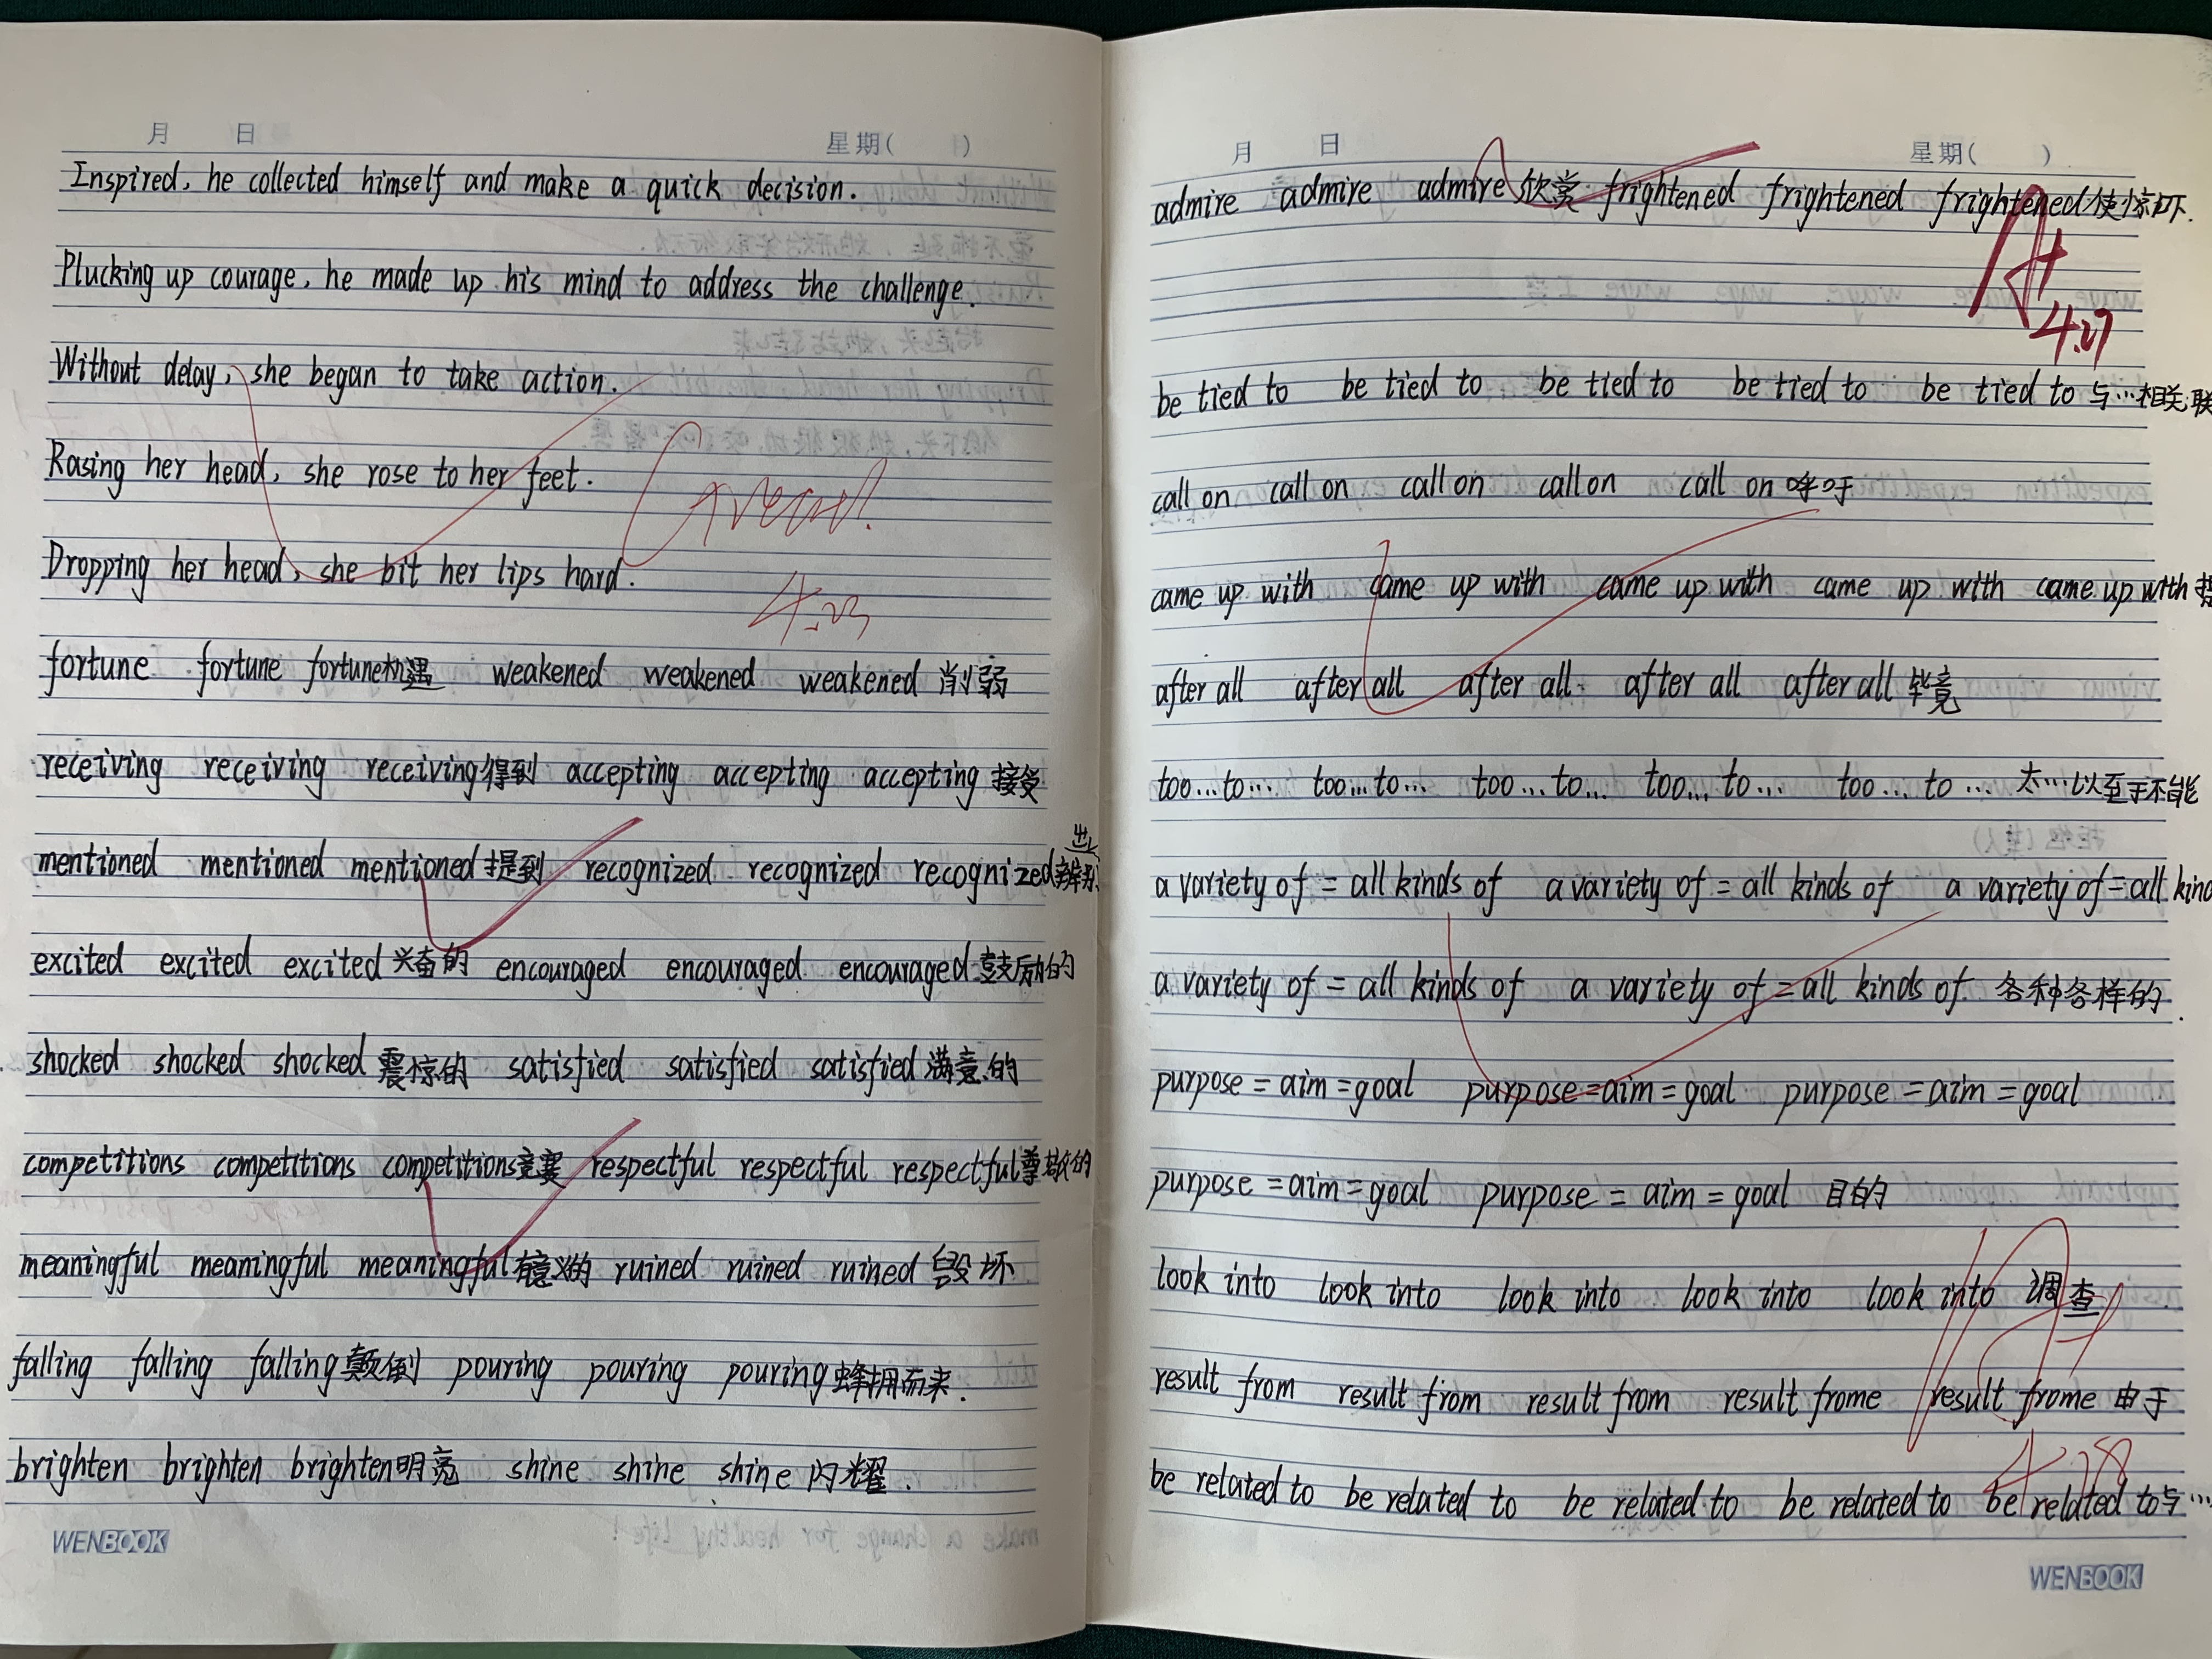 月 日 星期( )
Inspired, he collected himself and make a quick decision.
Plucking up courage, he made up his mind to address the challenge.
Without delay, she began to take action.
Rasing her head, she rose to her feet.
Great!
Dropping her head, she bit her lips hard.
4.23
fortune fortune fortune机遇 weakened weakened weakened 削弱
receiving receiving receiving得到 accepting accepting accepting 接受
mentioned mentioned mentioned提到 recognized recognized recognized辨别出
excited excited excited 兴奋的 encouraged encouraged encouraged 鼓励的
shocked shocked shocked 震惊的 satisfied satisfied satisfied 满意的
competitions competitions competitions竞赛 respectful respectful respectful尊敬的
meaningful meaningful meaningful有意义的 ruined ruined ruined 毁坏
falling falling falling颠倒 pouring pouring pouring蜂拥而来.
brighten brighten brighten明亮 shine shine shine 闪耀.
WENBOOK
月 日 星期( )
admire admire admire 欣赏 frightened frightened frightened使惊吓.
A+
4.27
be tied to be tied to be tied to be tied to be tied to 与…相关联
call on call on call on call on call on 呼吁
came up with came up with came up with came up with came up with
after all after all after all after all after all 毕竟
too...to... too...to... too...to... too...to... too...to... 太…以至于不能
a variety of = all kinds of a variety of = all kinds of a variety of = all kind
a variety of = all kinds of a variety of = all kinds of 各种各样的.
purpose = aim = goal purpose = aim = goal purpose = aim = goal
purpose = aim = goal purpose = aim = goal 目的
look into look into look into look into look into 调查
result from result from result from result frome result frome 由于
4.28
be related to be related to be related to be related to be related to与…
WENBOOK